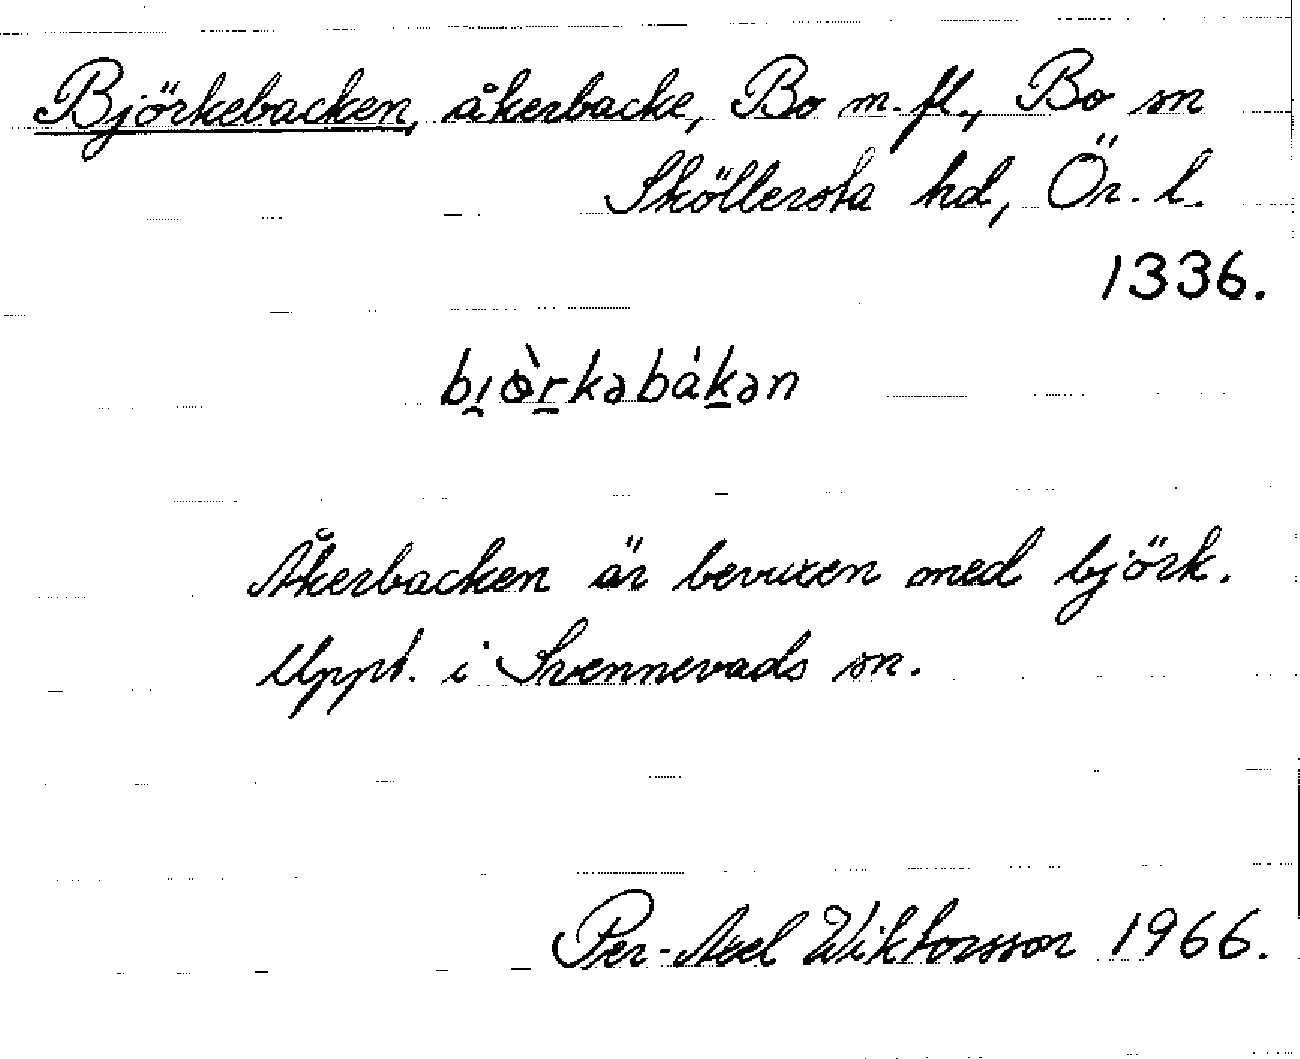 Björkebacken, åkerbacke, Bo m.fl., Bo sn
Sköllersta hd, Ör. l.
1336.
bı̯ɵ̀r̠kəbákə̠n
Åkerbacken är bevuxen med björk.
Uppt. i Svennevads sn.
Per-Axel Wiktorsson 1966.